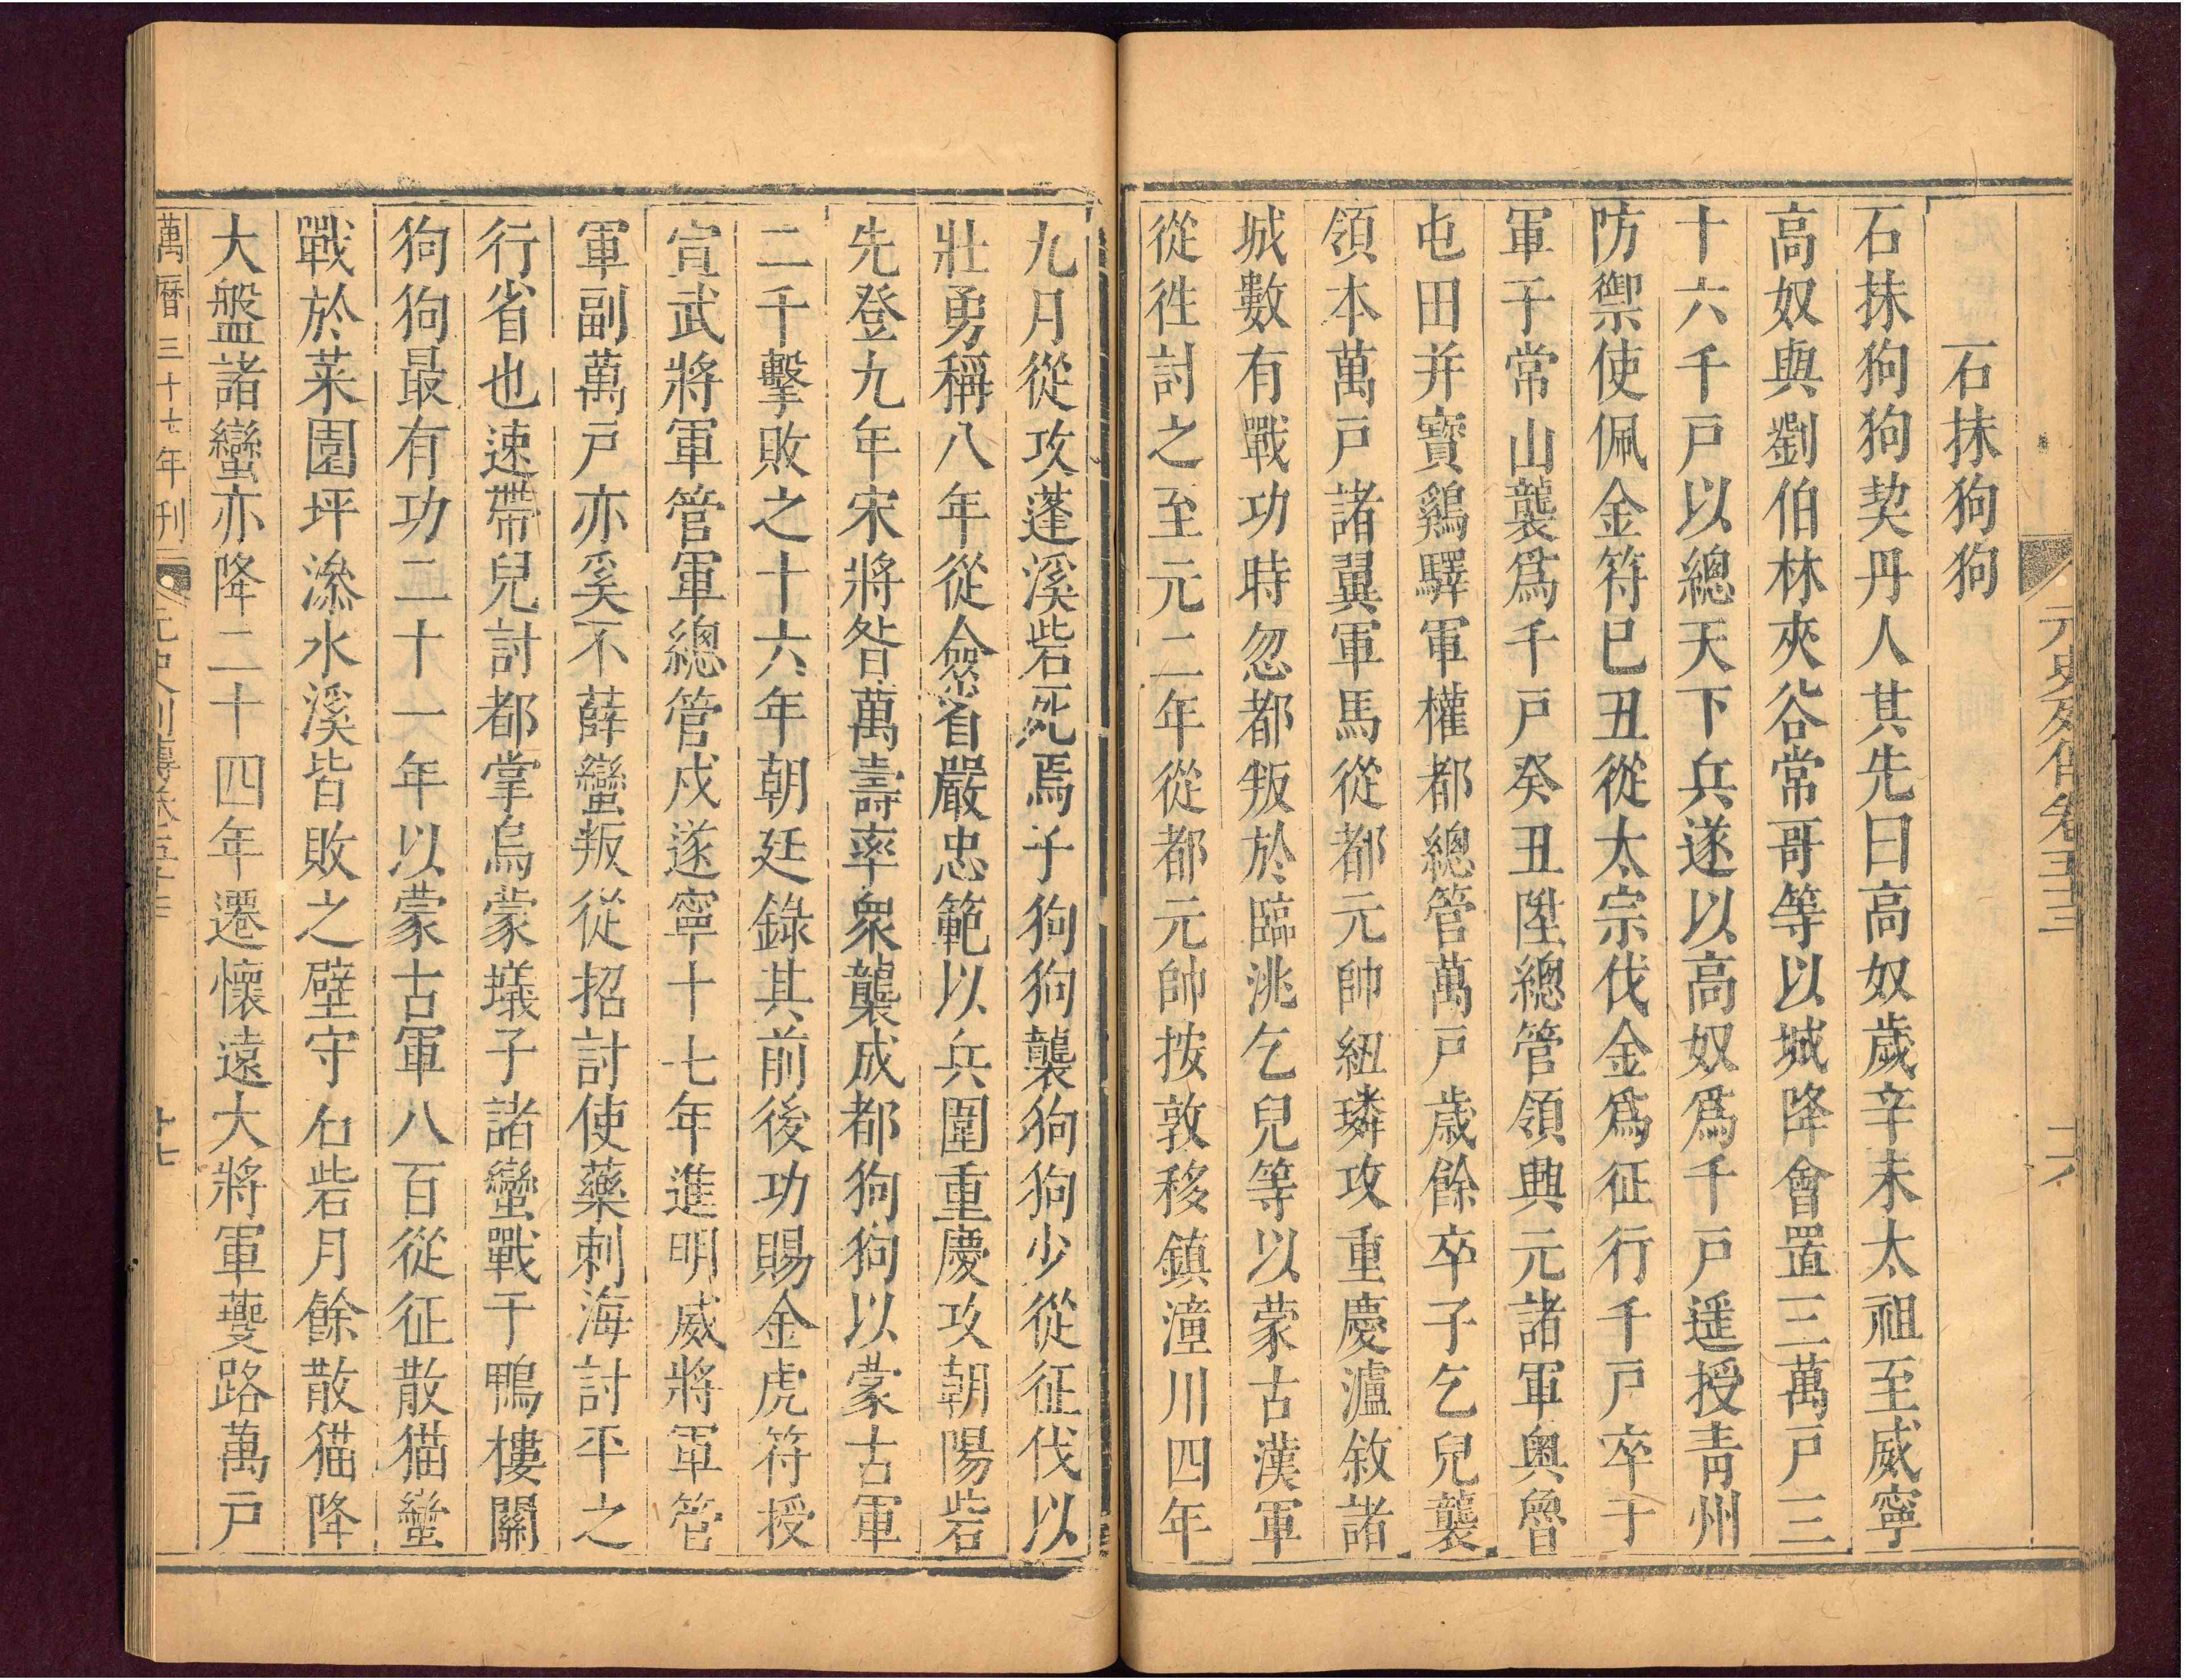 元史列傳卷五十三
十六
石抹狗狗
石抹狗狗契丹人其先曰高奴歲辛未太祖至威寧
高奴與劉伯林夾谷常哥等以城降會置三萬戶三
十六千戶以總天下兵遂以高奴爲千戶遥授青州
防禦使佩金符巳丑從太宗伐金爲征行千戶卒于
軍子常山襲爲千戶癸丑陞總管領興元諸軍奧魯
屯田并寶鷄驛軍權都總管萬戶歲餘卒子乞兒襲
領本萬戶諸翼軍馬從都元帥紐璘攻重慶瀘敘諸
城數有戰功時忽都叛於臨洮乞兒等以蒙古漢軍
從徃討之至元二年從都元帥按敦移鎮潼川四年
九月從攻蓬溪砦死焉子狗狗襲狗狗少從征伐以
壯勇稱八年從僉省嚴忠範以兵圍重慶攻朝陽砦
先登九年宋將昝萬壽率衆襲成都狗狗以蒙古軍
二千擊敗之十六年朝廷錄其前後功賜金虎符授
宣武將軍管軍總管戍遂寧十七年進明威將軍管
軍副萬戶亦奚不薛蠻叛從招討使藥刺海討平之
行省也速帶兒討都掌烏蒙蟻子諸蠻戰于鴨樓關
狗狗最有功二十一年以蒙古軍八百從征散猫蠻
戰於菜園坪滲水溪皆敗之壁守石砦月餘散猫降
大盤諸蠻亦降二十四年遷懷遠大將軍夔路萬戶
萬曆三十七年刊
元史列傳卷五十三
十七